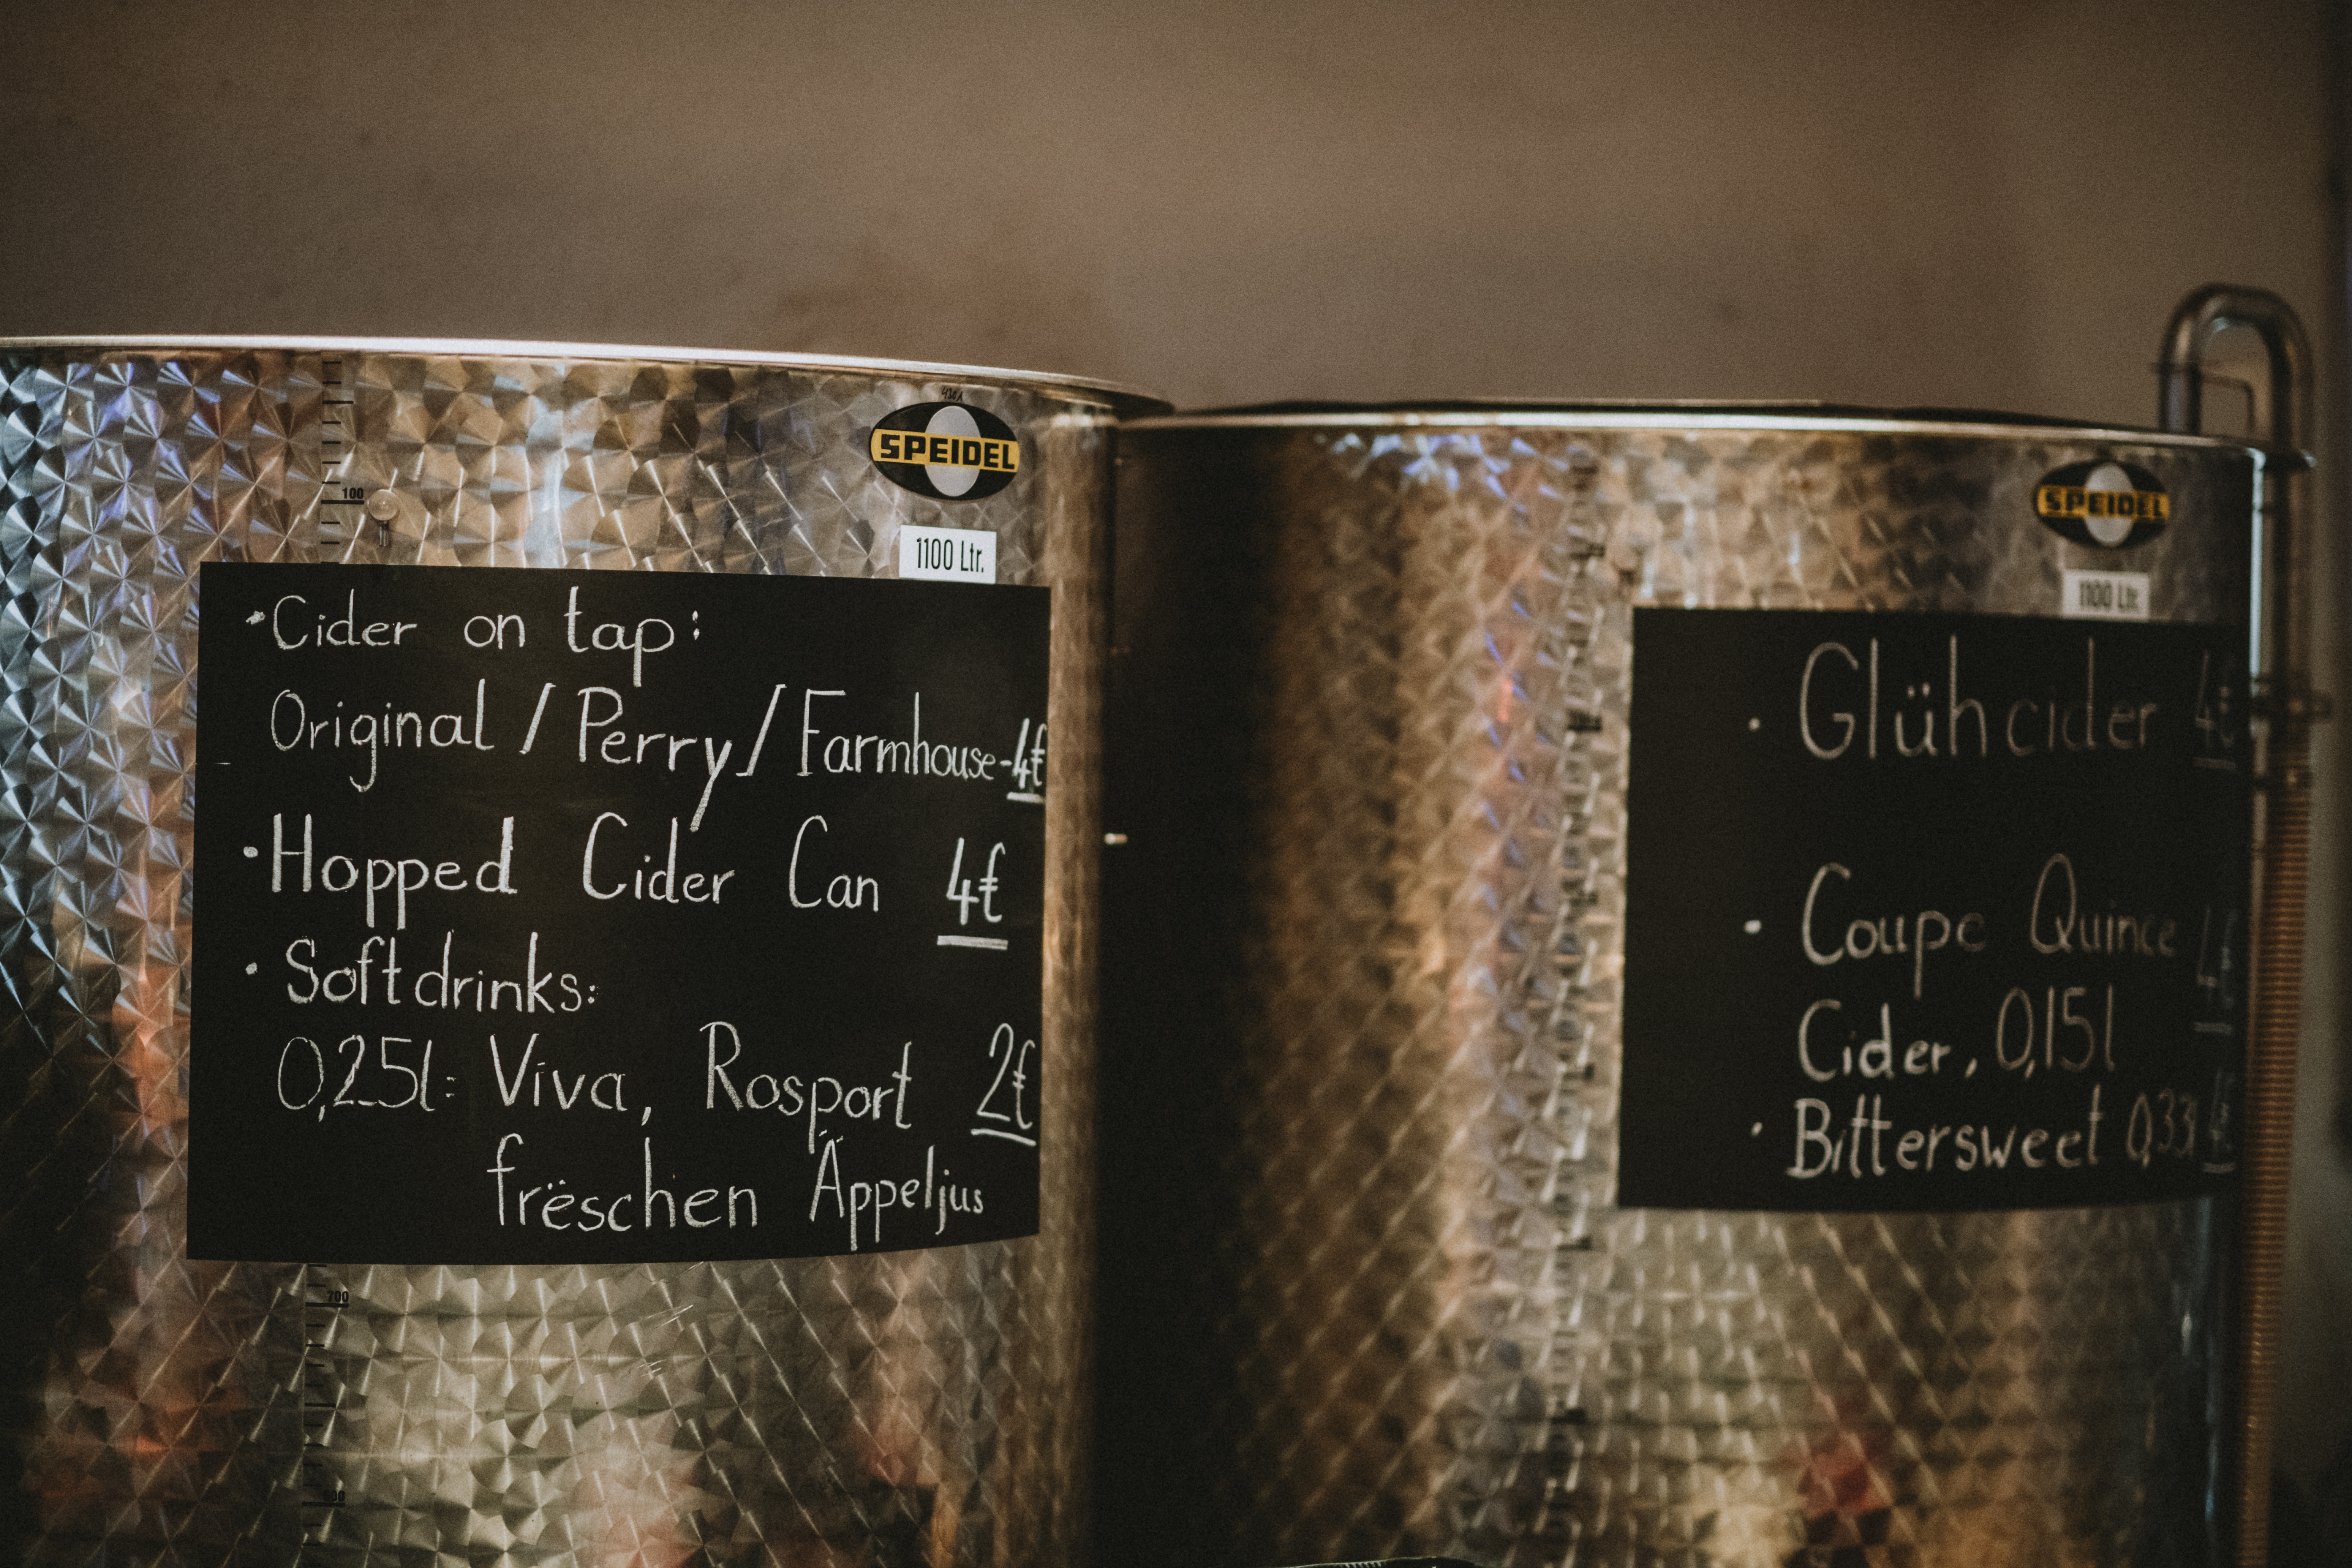 SPEIDEL
1100 Ltr.
100
• Cider on tap:
Original / Perry / Farmhouse - 4€
• Hopped Cider Can 4€
• Softdrinks:
0,25l: Viva, Rosport 2€
frëschen Äppeljus
700
SPEIDEL
1100 Ltr.
• Glühcider 4€
• Coupe Quince 4€
Cider, 0,15l
• Bittersweet 0,33l 4€